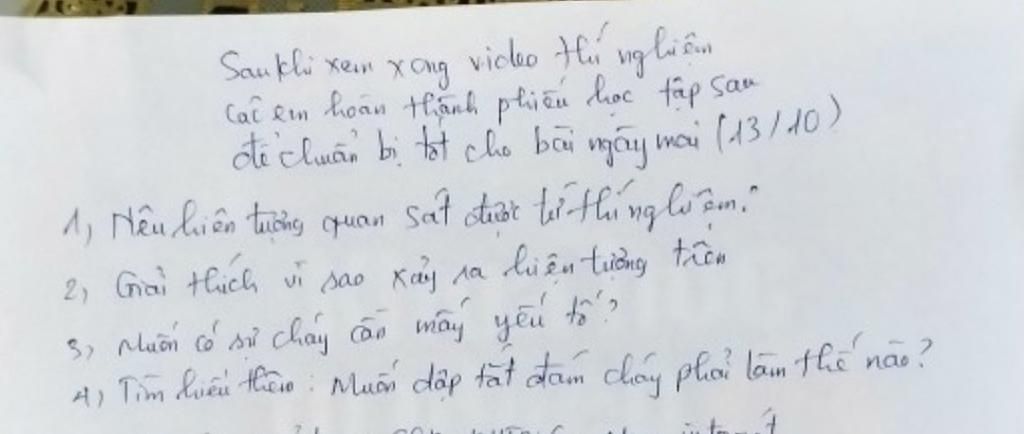 Sau khi xem xong video thí nghiệm
các em hoàn thành phiếu học tập sau
để chuẩn bị tốt cho bài ngày mai (13/10)
1, Nêu hiện tượng quan sát được từ thí nghiệm?
2, Giải thích vì sao xảy ra hiện tượng trên
3, Muốn có sự cháy cần mấy yếu tố?
4, Tìm hiểu thêm: Muốn dập tắt đám cháy phải làm thế nào?